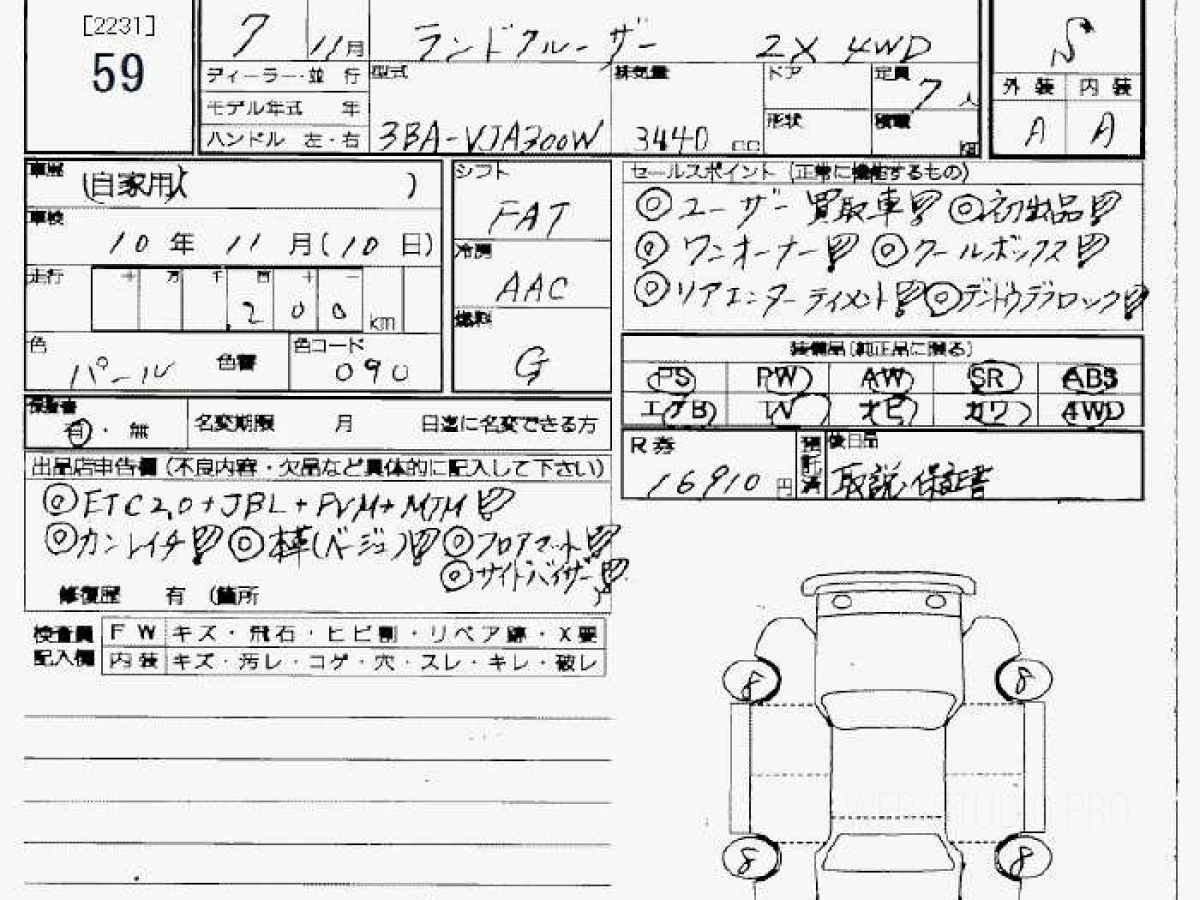 [2231]
59
7 11月 ランドクルーザー ZX 4WD
S
ディーラー・並行
モデル年式 年
ハンドル 左・右
型式 3BA-VJA300W
排気量 3440 cc
ドア
形状
定員 7 人
積載 kg
外装 内装
A A
車歴 (自家用)
車検
10年 11月(10日)
走行 十 万 千 百 十 一
200 km
色 パール 色替
色コード 090
シフト
FAT
冷房
AAC
燃料
G
セールスポイント (正常に機能するもの)
◎ユーザー買取車!! ◎初出品!!
◎ワンオーナー!! ◎クールボックス!!
◎リアエンターテイメント!! ◎デンドウデフロック!!
装備品(純正品に限る)
PS PW AW SR ABS
エアB TV ナビ カワ 4WD
保証書
有・無 名変期限 月 日迄に名変できる方
R券
16910 円
預託済
後日品
取説・保証書
出品店申告欄(不良内容・欠品など具体的に記入して下さい)
◎ETC2.0+JBL+PVM+MTM!!
◎カンレイチ!! ◎本革(ベージュ)!! ◎フロアマット!!
◎サイドバイザー!!
修復歴 有 (箇所 )
検査員記入欄
FW キズ・飛石・ヒビ割・リペア跡・X要
内装 キズ・汚レ・コゲ・穴・スレ・キレ・破レ
8 8
8 8
WEB STUDIO PRO